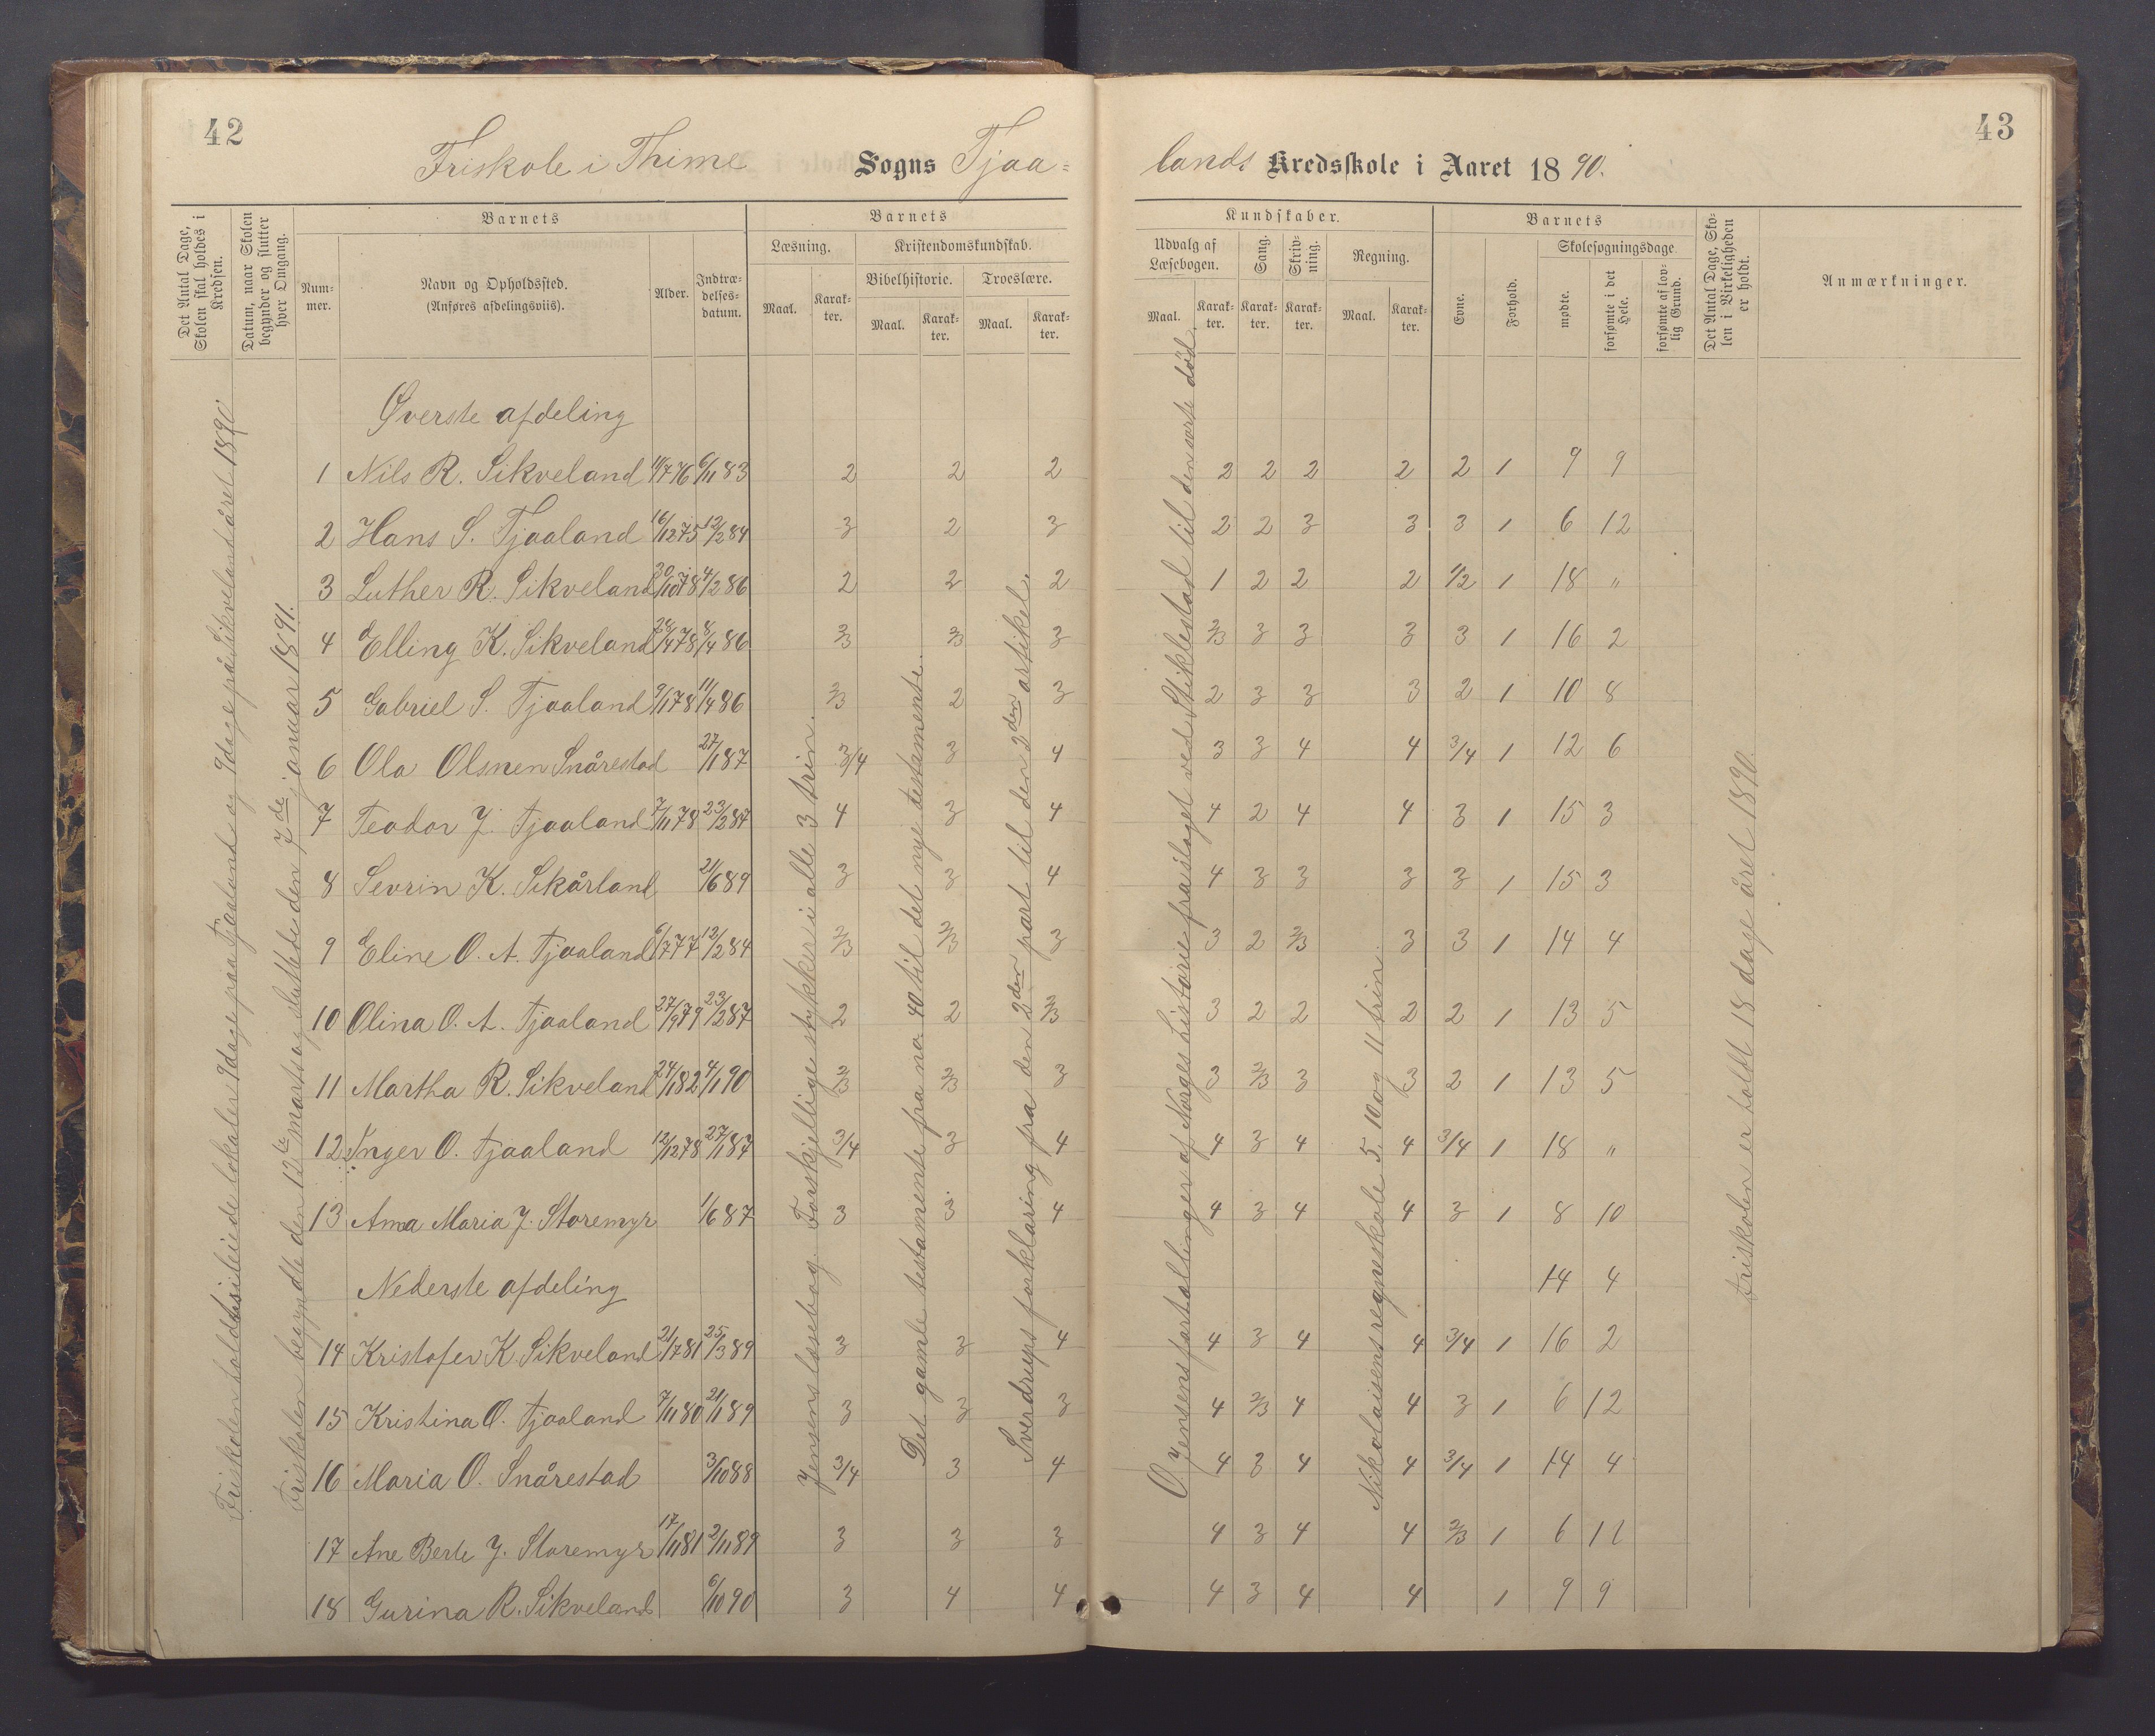 42
43
Friskole i Thime Sogns Tjaa=
lands Kredsskole i Aaret 1890.
Det Antal Dage, Skolen skal holdes i Kredsen.
Datum, naar Skolen begynder og slutter hver Omgang.
Barnets
Nummer.
Navn og Opholdssted.
(Anføres afdelingsviis).
Alder.
Indtrædelsesdatum.
Barnets
Læsning.
Maal.
Karakter.
Kristendomskundskab.
Bibelhistorie.
Maal.
Karakter.
Troeslære.
Maal.
Karakter.
Kundskaber.
Udvalg af Læsebogen.
Maal.
Karakter.
Sang.
Karakter.
Skrivning.
Karakter.
Regning.
Maal.
Karakter.
Barnets
Evne.
Forhold.
Skolesøgningsdage.
mødte.
forsømte i det Hele.
forsømte af lovlig Grund.
Det Antal Dage, Skolen i Virkeligheden er holdt.
Anmærkninger.
Friskolen holdtes i leiede lokaler 9 dage paa Tjaaland og 9 dage på Sikveland året 1890.
Friskolen begyndte den 12te marts og sluttede den 7de januar 1891.
Jensens læsebog. Forskjellige stykker i alle 3 trin.
Det gamle testamente fra no. 40 til det nye testamente.
Sverdrups forklaring fra den 2den part til den 2den artikel.
O. Jensens fortællinger af Norges historie fra slaget ved Stiklestad til den sorte død.
Nikolaisens regneskole 5, 10 og 11 trin.
Friskolen er holdt 18 dage året 1890.
Øverste afdeling
1 Nils R. Sikveland 11/7 76 6/11 83 2 2 2 2 2 2 2 2 1 9 9
2 Hans S. Tjaaland 16/12 75 12/2 84 3 2 3 2 2 3 3 3 1 6 12
3 Luther R. Sikveland 30/10 78 4/2 86 2 2 2 1 2 2 2 1/2 1 18 "
4 Elling K. Sikveland 28/4 78 8/4 86 2/3 2/3 3 2/3 3 3 3 3 1 16 2
5 Gabriel S. Tjaaland 9/1 78 11/4 86 2/3 2 3 2 3 3 3 2 1 10 8
6 Ola Olsnen Snårestad 27/1 87 3/4 3 4 3 3 4 4 3/4 1 12 6
7 Teodor J. Tjaaland 7/11 78 23/2 87 4 3 4 4 2 4 4 3 1 15 3
8 Sevrin K. Sikårland 21/6 89 3 3 4 4 3 3 3 3 1 15 3
9 Eline O. A. Tjaaland 6/7 77 12/2 84 2/3 2/3 3 3 2 2/3 3 3 1 14 4
10 Olina O. A. Tjaaland 27/9 79 23/2 87 2 2 2/3 3 2 2 2 2 1 13 5
11 Martha R. Sikveland 24/1 82 4/1 90 2/3 2/3 3 3 2/3 3 3 2 1 13 5
12 Inger O. Tjaaland 12/12 78 27/1 87 3/4 3 4 4 3 4 4 3/4 1 18 "
13 Ama Maria J. Storemyr 1/6 87 3 3 4 4 3 4 4 3 1 8 10
Nederste afdeling 14 4
14 Kristofer K. Sikveland 21/7 81 25/3 89 3 3 4 4 3 4 4 3/4 1 16 2
15 Kristina O. Tjaaland 7/11 80 21/1 89 3 3 3 4 2/3 4 4 3 1 6 12
16 Maria O. Snårestad 3/10 88 3/4 3 4 4 3 4 4 3/4 1 14 4
17 Ane Berte J. Storemyr 17/11 81 2/11 89 3 3 3 4 3 4 4 2/3 1 6 11
18 Gurina R. Sikveland 6/10 90 3 4 4 4 3 4 4 1 9 9